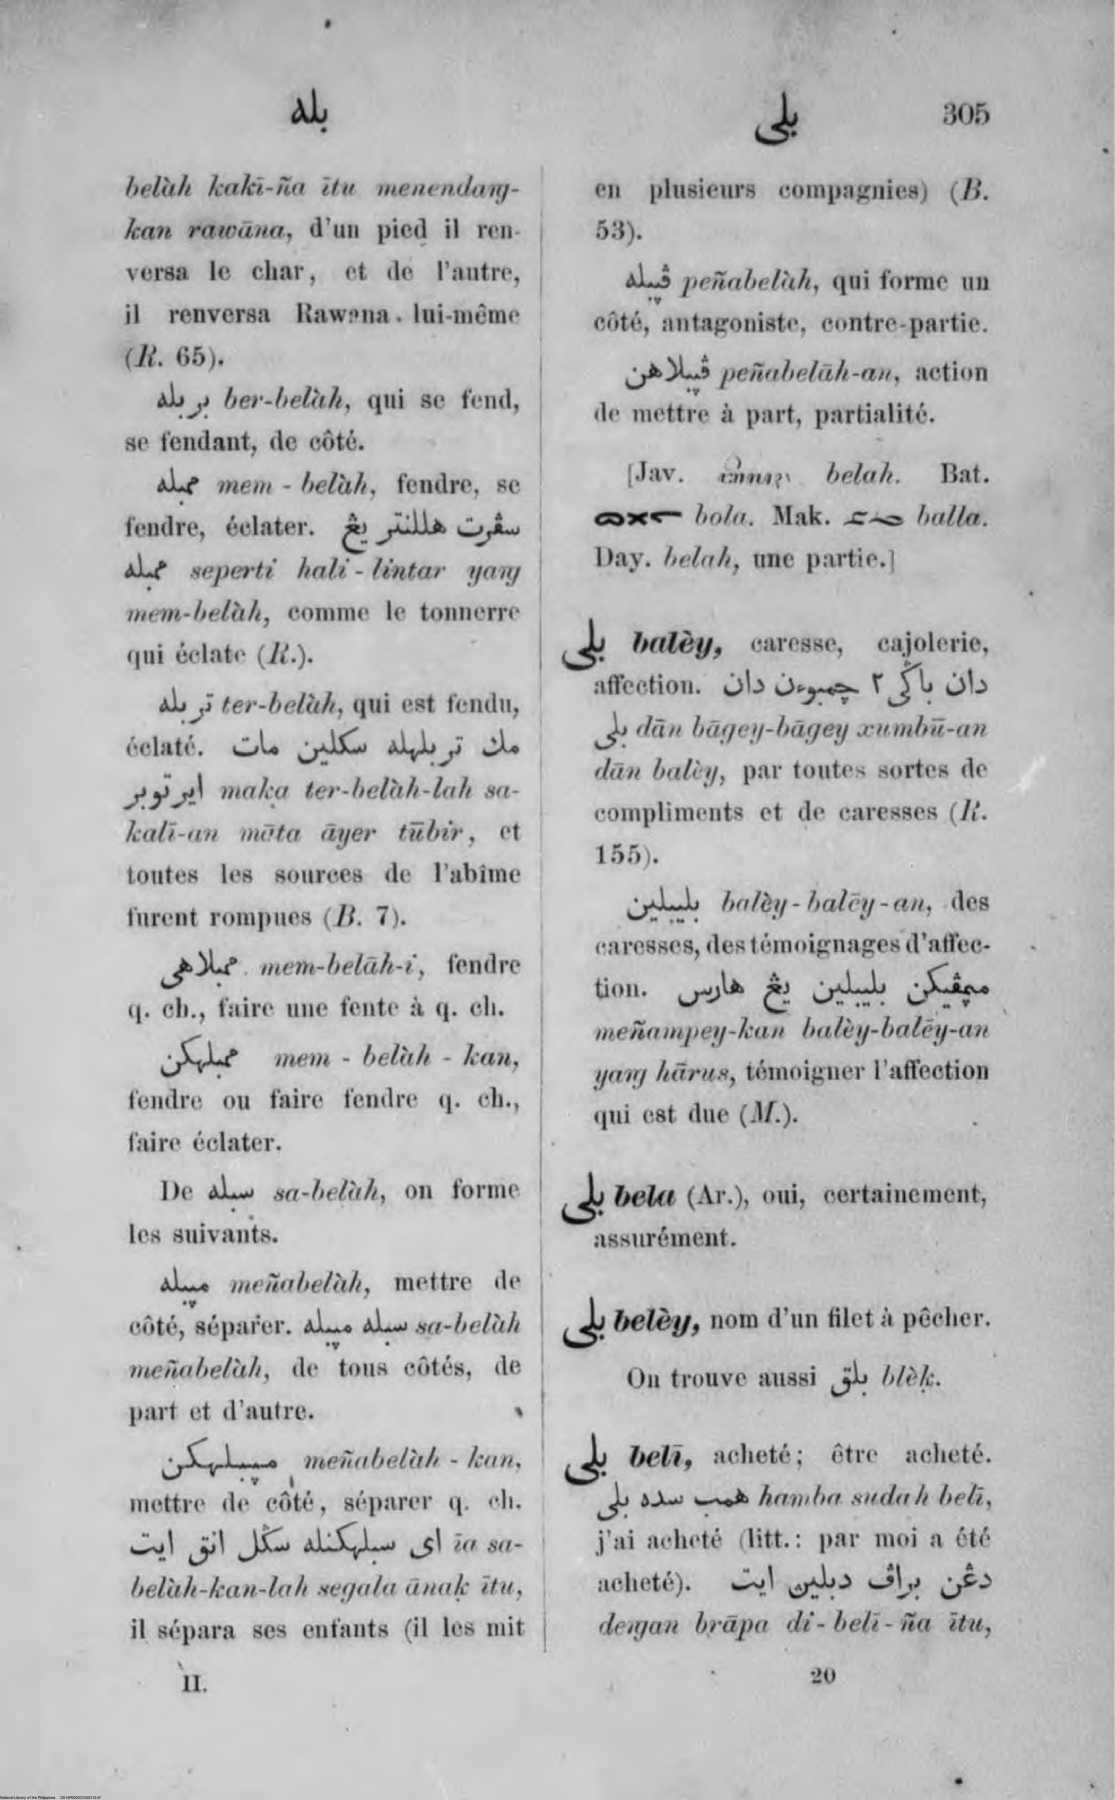 بله
بلي
305
belàh kakī-ña ītu menendaŋ-
kan rawāna, d'un pied il ren-
versa le char, et de l'autre,
il renversa Rawana lui-même
(R. 65).
بربله ber-belàh, qui se fend,
se fendant, de côté.
ممبله mem-belàh, fendre, se
fendre, éclater. سڤرت هللنتر يڠ
ممبله seperti hali-lintar yaŋ
mem-belàh, comme le tonnerre
qui éclate (R.).
تربله ter-belàh, qui est fendu,
éclaté. مك تربلهله سكلين مات
ايرتوبر maka ter-belàh-lah sa-
kalī-an māta āyer tūbir, et
toutes les sources de l'abîme
furent rompues (B. 7).
ممبلاهي mem-belāh-i, fendre
q. ch., faire une fente à q. ch.
ممبلهكن mem-belàh-kan,
fendre ou faire fendre q. ch.,
faire éclater.
De سبله sa-belàh, on forme
les suivants.
meñabelàh, mettre de
côté, séparer. سبله sa-belàh
meñabelàh, de tous côtés, de
part et d'autre.
meñabelàh-kan,
mettre de côté, séparer q. ch.
اي سبلهكنله سڬل انق ايت īa sa-
belàh-kan-lah segala ānaḳ ītu,
il sépara ses enfants (il les mit
II.
en plusieurs compagnies) (B.
53).
peñabelàh, qui forme un
côté, antagoniste, contre-partie.
peñabelāh-an, action
de mettre à part, partialité.
[Jav. belah. Bat.
bola. Mak. balla.
Day. belah, une partie.]
بلي balèy, caresse, cajolerie,
affection. دان باڬي ٢ چمبوءن دان
بلي dān bāgey-bāgey xumbū-an
dān balèy, par toutes sortes de
compliments et de caresses (R.
155).
بليبلين balèy-balēy-an, des
caresses, des témoignages d'affec-
tion. بليبلين يڠ هارس
meñampey-kan balèy-balēy-an
yaŋ hārus, témoigner l'affection
qui est due (M.).
بلى bela (Ar.), oui, certainement,
assurément.
بلي belèy, nom d'un filet à pêcher.
On trouve aussi بلق blèḳ.
بلي belī, acheté; être acheté.
همب سده بلي hamba sudah belī,
j'ai acheté (litt.: par moi a été
acheté). دڠن براڤ دبلين ايت
deŋan brāpa di-belī-ña ītu,
20